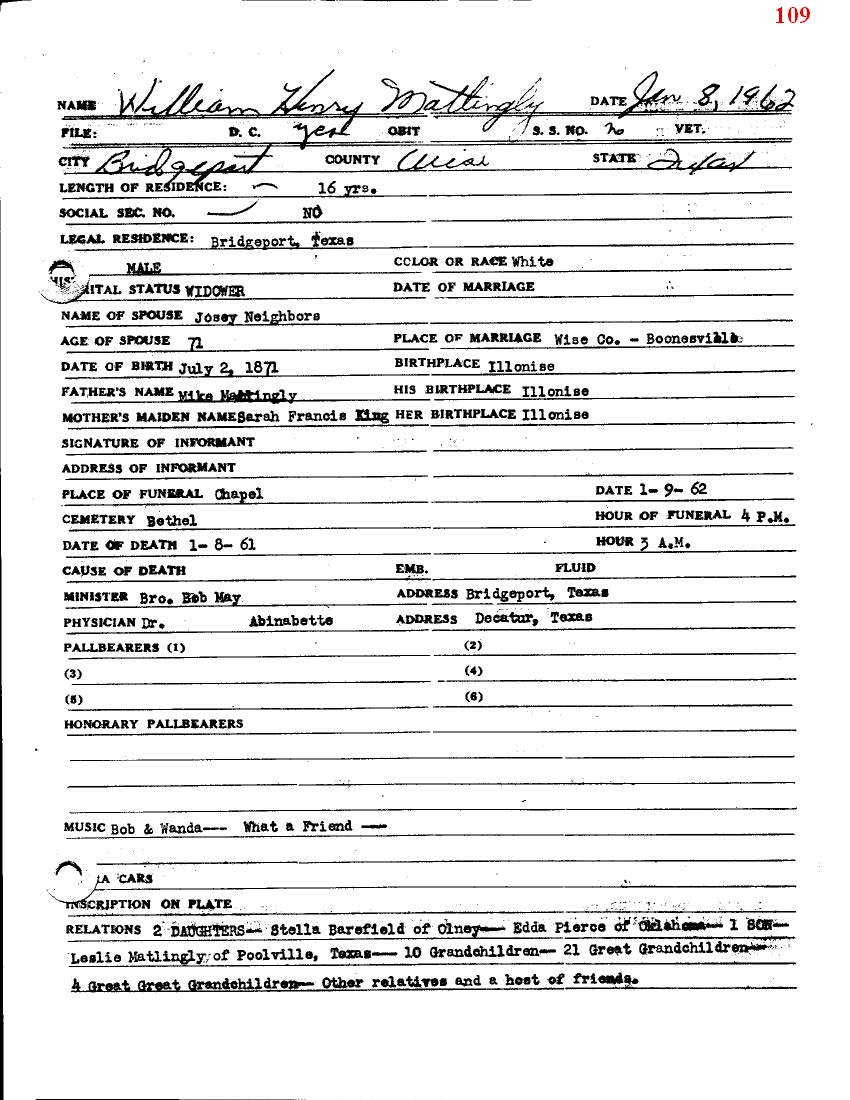 109
NAME William Henry Mattingly DATE Jan 8, 1962
FILE: D. C. yes OBIT S. S. NO. no VET.
CITY Bridgeport COUNTY Wise STATE Texas
LENGTH OF RESIDENCE: 16 yrs.
SOCIAL SEC. NO. NO
LEGAL RESIDENCE: Bridgeport, Texas
MALE COLOR OR RACE White
RITAL STATUS WIDOWER DATE OF MARRIAGE
NAME OF SPOUSE Josey Neighbors
AGE OF SPOUSE 71 PLACE OF MARRIAGE Wise Co. - Boonesville
DATE OF BIRTH July 2, 1871 BIRTHPLACE Illonise
FATHER'S NAME Mike Mattingly HIS BIRTHPLACE Illonise
MOTHER'S MAIDEN NAME Sarah Francis King HER BIRTHPLACE Illonise
SIGNATURE OF INFORMANT
ADDRESS OF INFORMANT
PLACE OF FUNERAL Chapel DATE 1- 9- 62
CEMETERY Bethel HOUR OF FUNERAL 4 P.M.
DATE OF DEATH 1- 8- 61 HOUR 3 A.M.
CAUSE OF DEATH EMB. FLUID
MINISTER Bro. Bob May ADDRESS Bridgeport, Texas
PHYSICIAN Dr. Abinabette ADDRESS Decatur, Texas
PALLBEARERS (1) (2)
(3) (4)
(5) (6)
HONORARY PALLBEARERS
MUSIC Bob & Wanda--- What a Friend ---
A CARS
INSCRIPTION ON PLATE
RELATIONS 2 DAUGHTERS-- Stella Barefield of Olney--- Edda Pierce of Oklahoma-- 1 SON--
Leslie Matlingly of Poolville, Texas--- 10 Grandchildren-- 21 Great Grandchildren--
4 Great Great Grandchildren-- Other relatives and a host of friends.